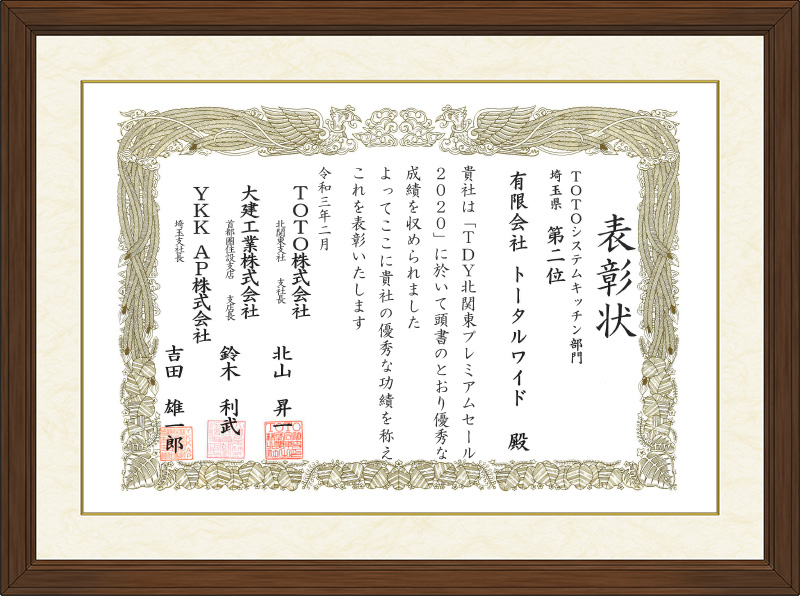 表彰状
TOTOシステムキッチン部門
埼玉県 第二位
有限会社 トータルワイド 殿
貴社は「TDY北関東プレミアムセール
2020」に於いて頭書のとおり優秀な
成績を収められました
よってここに貴社の優秀な功績を称え
これを表彰いたします
令和三年二月
TOTO株式会社
北関東支社 支社長
北山 昇一
大建工業株式会社
首都圏住設支店 支店長
鈴木 利武
YKK AP株式会社
埼玉支社長
吉田 雄一郎